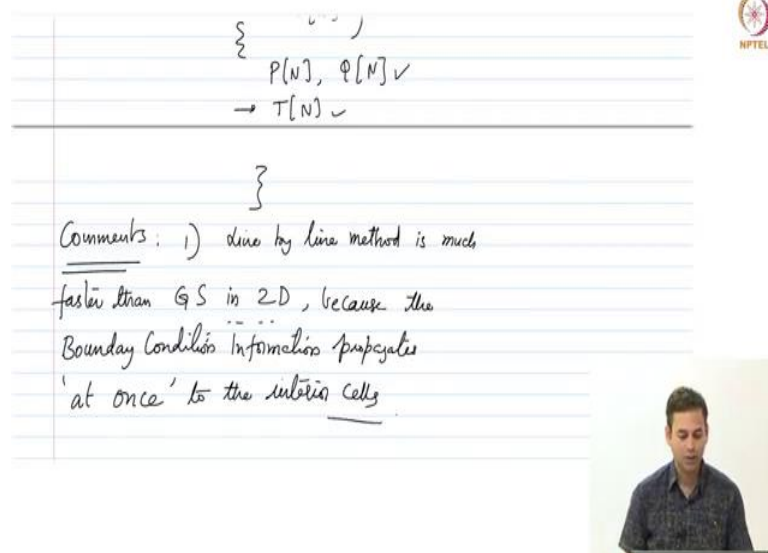 {
P[N], Q[N] ✓
→ T[N] ✓
}
Comments: 1) Line by line method is much
faster than GS in 2D, because the
Bounday Condition Information propagates
'at once' to the interior cells.
NPTEL